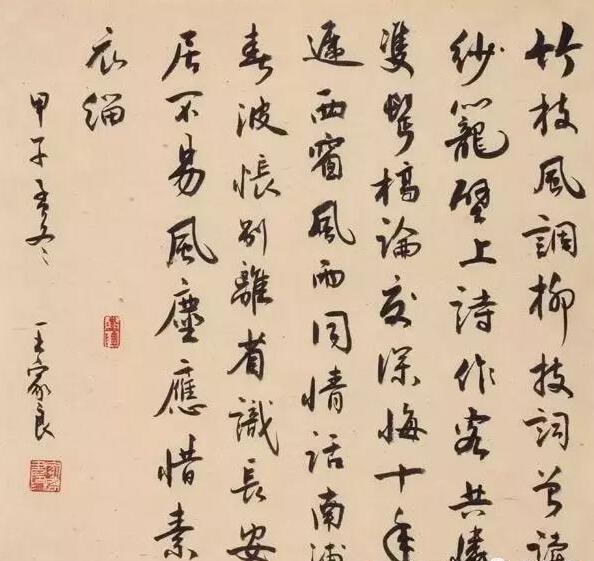 竹枝風調柳枝詞曾讀
紗籠壁上詩作客共憐
雙鬢槁論交深悔十年
遲西窗風雨同情話南浦
春波悵別離省識長安
居不易風塵應惜素
衣緇
甲子冬
王家良